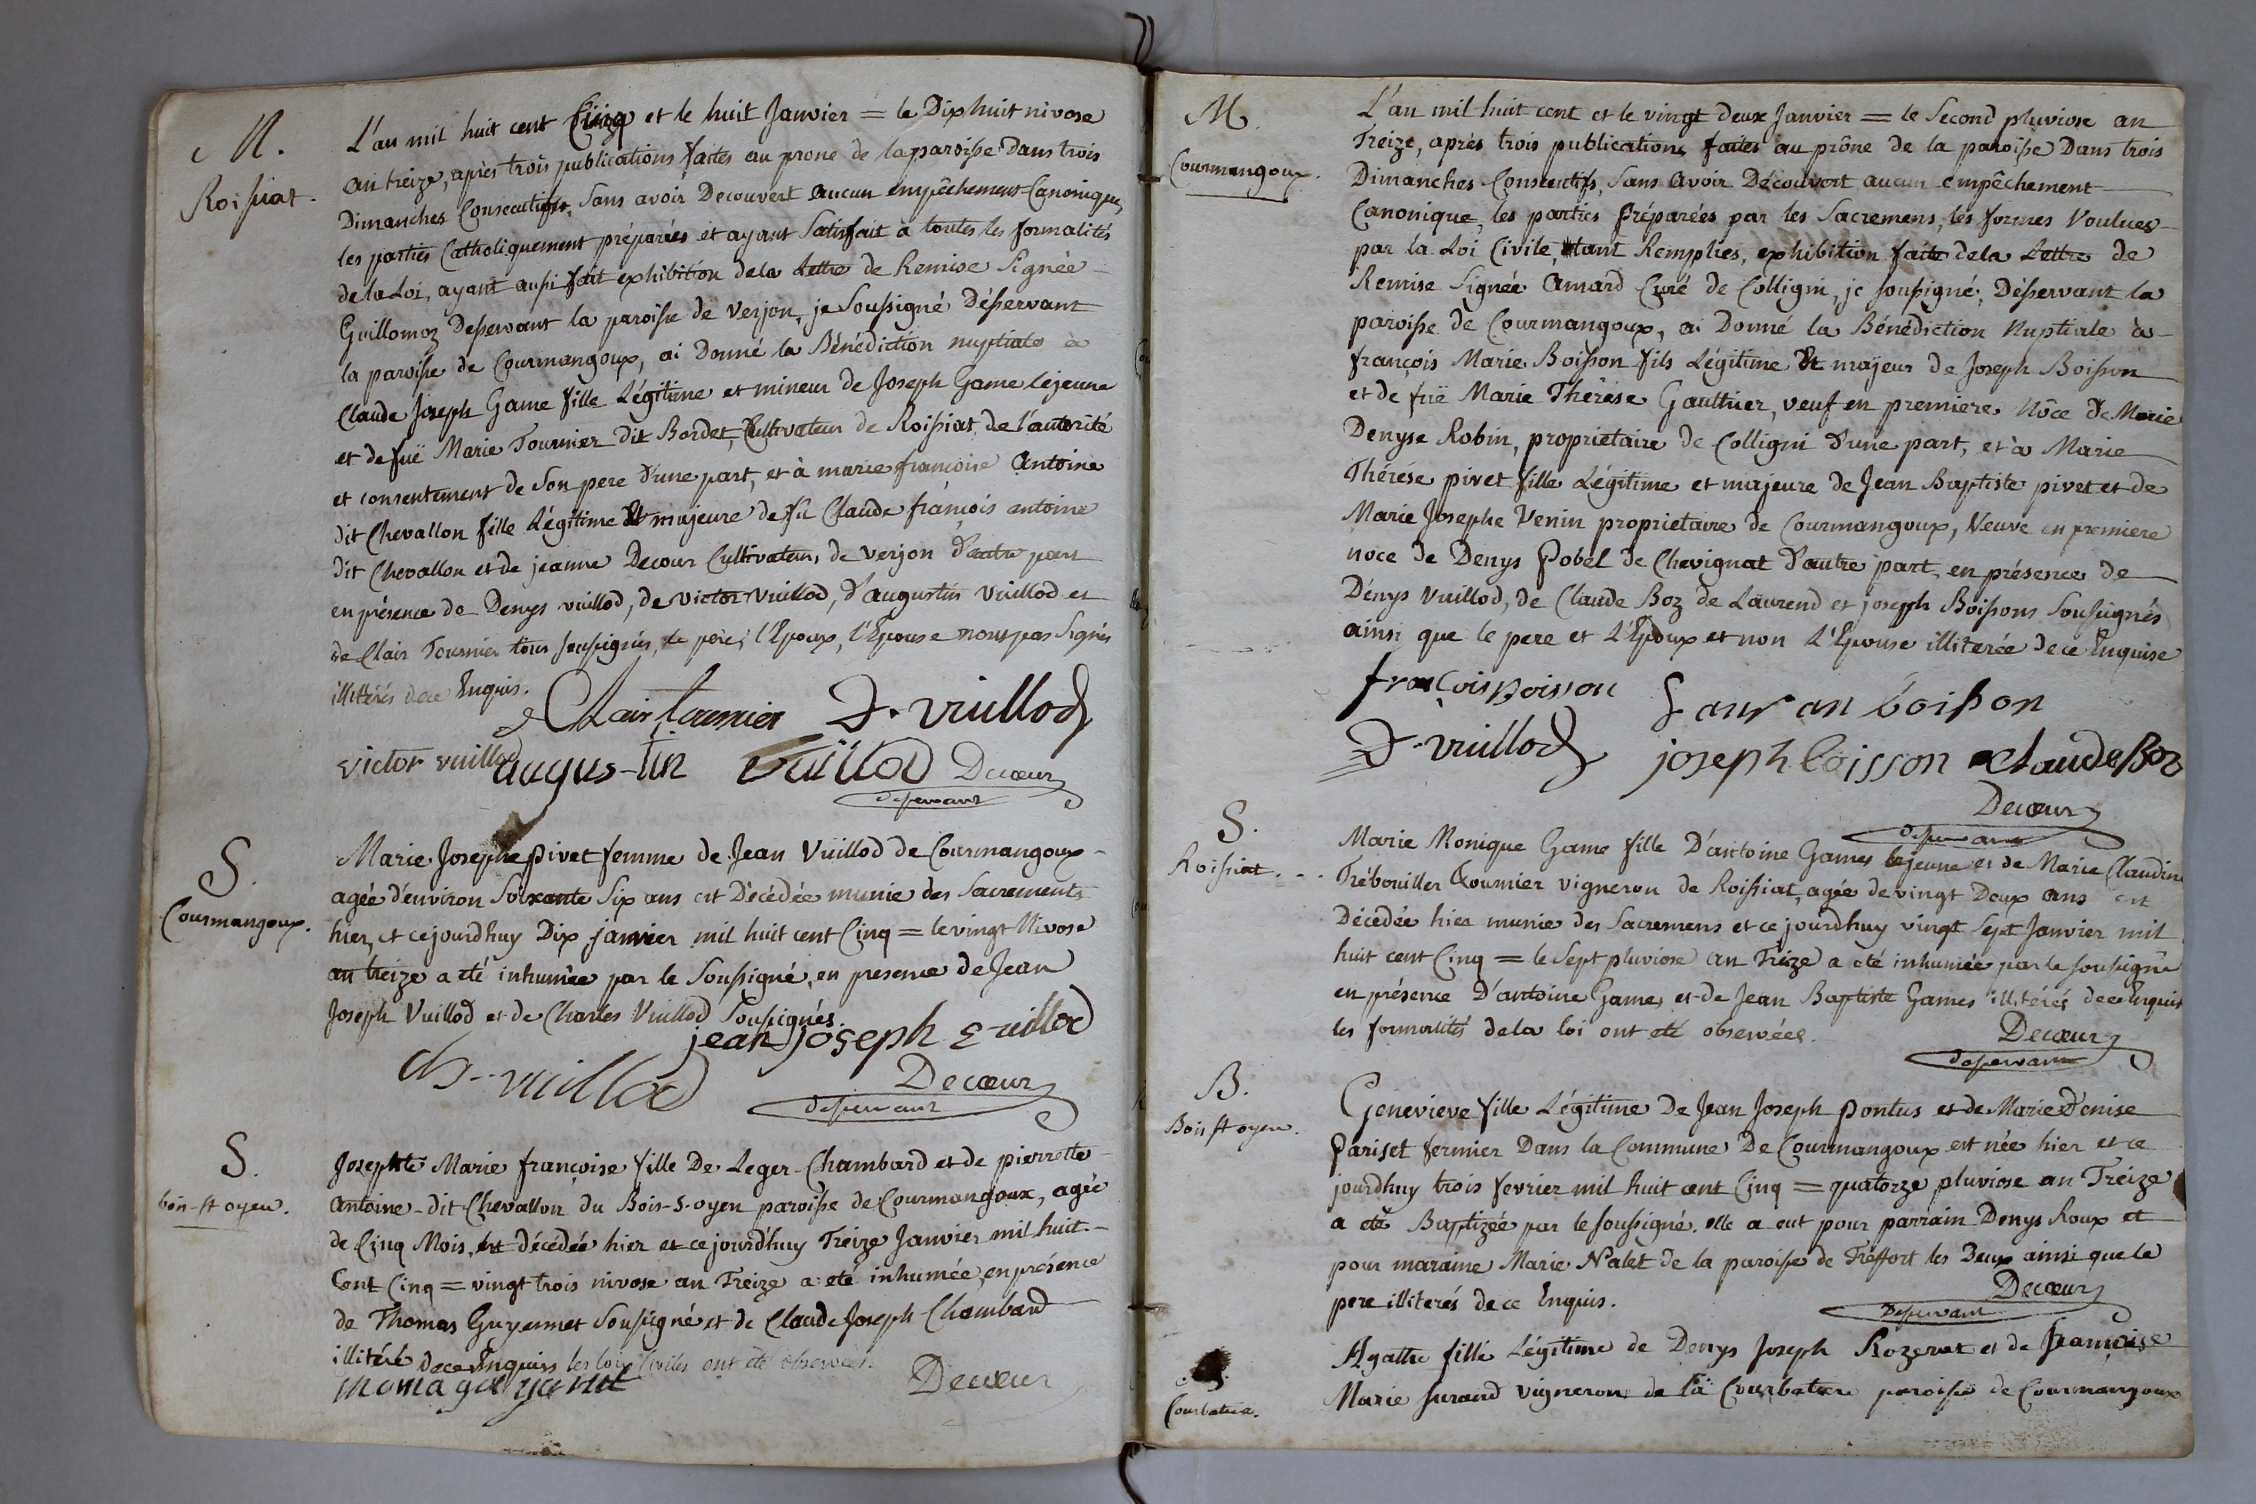 M.
Roissiat.
L'an mil huit cent Cinq et le huit Janvier = le Dix huit nivose
an treize, après trois publications faites au prone de la paroisse Dans trois
Dimanches Consecutifs, Sans avoir Decouvert aucun empêchement Canonique,
les parties Catholiquement préparées et ayant Satisfait à toutes les formalités
de la Loi, ayant aussi fait exhibition de la Lettre de Remise Signée
Guillomoz Desservant la paroisse de Verjon, je Soussigné Désservant
la paroisse de Courmangoux, ai Donné la Bénédiction nuptiale à
Claude Joseph Game fille Légitime et mineur de Joseph Game lejeune
et de fuë Marie Tournier dit Bordet, Cultivateur de Roissiat, de l'autorité
et consentement de Son pere d'une part, et à marie françoise Antoine
dit Chevallon fille Légitime Et majeure de fû Claude françois antoine
dit Chevallon et de jeanne Decour Cultivateur, de verjon d'autre part
en présence de Denys vuillod, de victor vuillod, d'augustin vuillod et
de Clair Tournier tous soussignés, le père, l'Epoux, l'Epouse n'ont pas Signés
illitérés de ce Enquis.
Clair tournier D. vuillod
victor vuillod augustin vuillod Decœur
desservant
S.
Courmangoux.
Marie Josephe pivet femme de Jean Vuillod de Courmangoux
agée d'environ Soixante Six ans est Décédée munie des Sacrements
hier, et cejourdhuy Dix janvier mil huit cent Cinq = le vingt Nivose
an treize a eté inhumée par le Soussigné, en presence de Jean
Joseph Vuillod et de Charles Vuillod Soussignés.
jean joseph vuillod
Ch. vuillod Decœur
desservant
S.
bois-st oyen.
Josephte Marie françoise fille De Leger Chambard et de pierrette
Antoine dit Chevallon du Bois-S-oyen paroisse de Courmangoux, agée
de Cinq Mois, est décédée hier et ce jourd'huy Treize Janvier mil huit
Cent Cinq = vingt trois nivose an Treize a eté inhumée, en présence
de Thomas Guyennet Soussigné et de Claude Joseph Chambard
illitéré de ce Enquis les loix Civiles ont été observées.
Decœur
M.
Courmangoux.
L'an mil huit cent et le vingt deux Janvier = le Second pluviose an
Treize, après trois publications faites au prône de la paroisse Dans trois
Dimanches Consecutifs, Sans avoir Découvert aucun empêchement
Canonique, les parties préparées par les Sacremens, les formes Voulues
par la Loi Civile, étant Remplies, exhibition faite de la Lettre de
Remise Signée Amard Curé de Colligni, je soussigné, Désservant la
paroisse de Courmangoux, ai Donné la Bénédiction Nuptiale à
françois Marie Boisson fils Légitime Et majeur de Joseph Boisson
et de fuë Marie Thérèse Gauthier, veuf en premiere Nôce de Marie
Denyse Robin, propriétaire de Colligni d'une part, et à Marie
Thérèse pivet fille Légitime et majeure de Jean Baptiste pivet et de
Marie Josephe Venin propriétaire de Courmangoux, Veuve en premiere
noce de Denys Pobel de Chevignat d'autre part, en présence de
Dénys Vuillod, de Claude Boz de Laurend et joseph Boissons Soussignés
ainsi que le pere et L'Epoux et non L'Epouse illiterée de ce Enquise
françois boisson boisson
D. vuillod joseph boisson Claude Boz
Decœur
desservant
S.
Roissiat.
Marie Monique Game fille D'antoine Games lejeune et de Marie Claudine
Trébouiller Tournier vigneron de Roissiat, agée de vingt Deux ans est
Décédée hier munie des Sacremens et ce jourdhuy vingt Sept Janvier mil
huit cent Cinq = le Sept pluviose an Treize a eté inhumée par le soussigné
en présence D'antoine Games et de Jean Baptiste Games illitérés de ce Enquis
les formalités de la loi ont eté observées.
Decœur
desservant
B.
Bois st oyen.
Genevieve fille Légitime De Jean Joseph Pontus et de Marie Denise
Pariset fermier Dans la Commune De Courmangoux est née hier et ce
jourdhuy trois fevrier mil huit cent Cinq = quatorze pluviose an Treize
a eté Baptizée par le soussigné. elle a eut pour parrain Denys Roux et
pour maraine Marie Nalet de la paroisse de Tréffort les Deux ainsi que le
pere illiterés de ce Enquis.
Decœur
Desservant
Courbature.
Agathe fille Légitime de Denys Joseph Rozerat et de Françoise
Marie Surand vigneron de la Courbature paroisse de Courmangoux